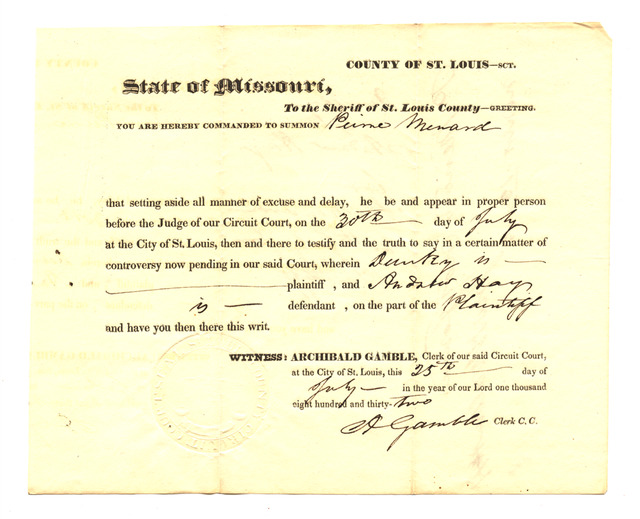 COUNTY OF ST. LOUIS—SCT.
State of Missouri,
To the Sheriff of St. Louis County—GREETING.
YOU ARE HEREBY COMMANDED TO SUMMON Pierre Menard
that setting aside all manner of excuse and delay, he be and appear in proper person
before the Judge of our Circuit Court, on the 30th day of July
at the City of St. Louis, then and there to testify and the truth to say in a certain matter of
controversy now pending in our said Court, wherein is
plaintiff , and Andrew Hay
is defendant , on the part of the Plaintiff
and have you then there this writ.
WITNESS: ARCHIBALD GAMBLE, Clerk of our said Circuit Court,
at the City of St. Louis, this 25th day of
July in the year of our Lord one thousand
eight hundred and thirty-two
A Gamble Clerk C. C.